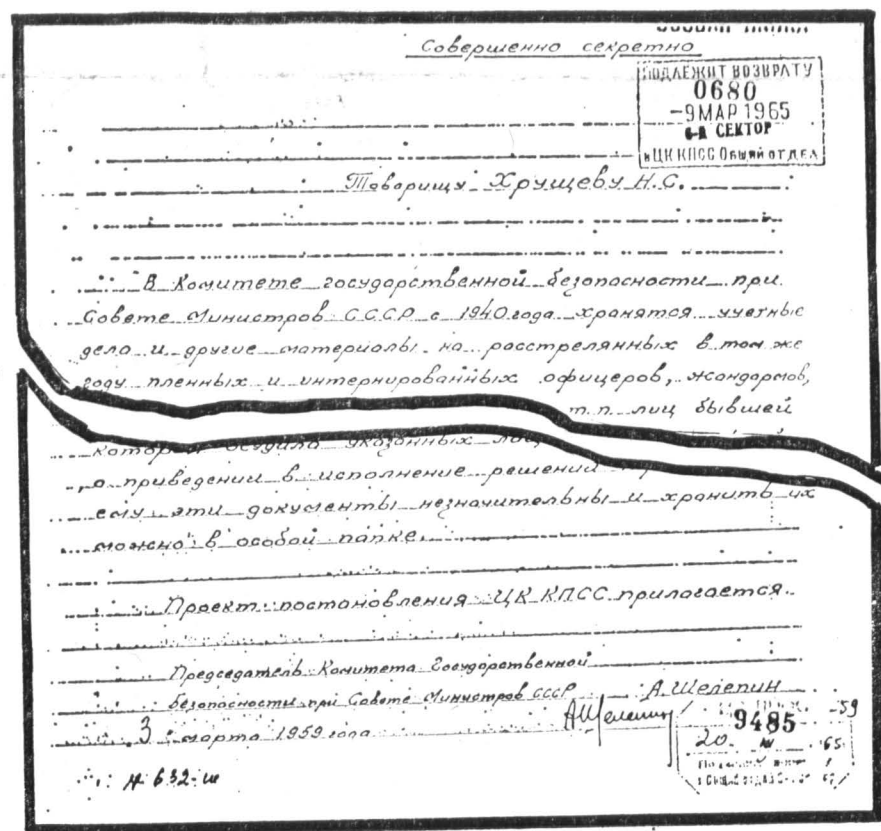 Совершенно секретно
ПОДЛЕЖИТ ВОЗВРАТУ
0680
-9 МАР 1965
6-й СЕКТОР
в ЦК КПСС Общий отдел
Товарищу Хрущеву Н.С.
В Комитете государственной безопасности при
Совете Министров СССР с 1940 года хранятся учетные
дела и другие материалы на расстрелянных в том же
году пленных и интернированных офицеров, жандармов,
т.п. лиц бывшей
осудила указанных
о приведении в исполнение решений
эти документы незначительны и хранить их
можно в особой папке.
Проект постановления ЦК КПСС прилагается.
Председатель Комитета Государственной
безопасности при Совете Министров СССР А. Шелепин
АШелепин
3 марта 1959 года
9485
20 65
№ 632-ш